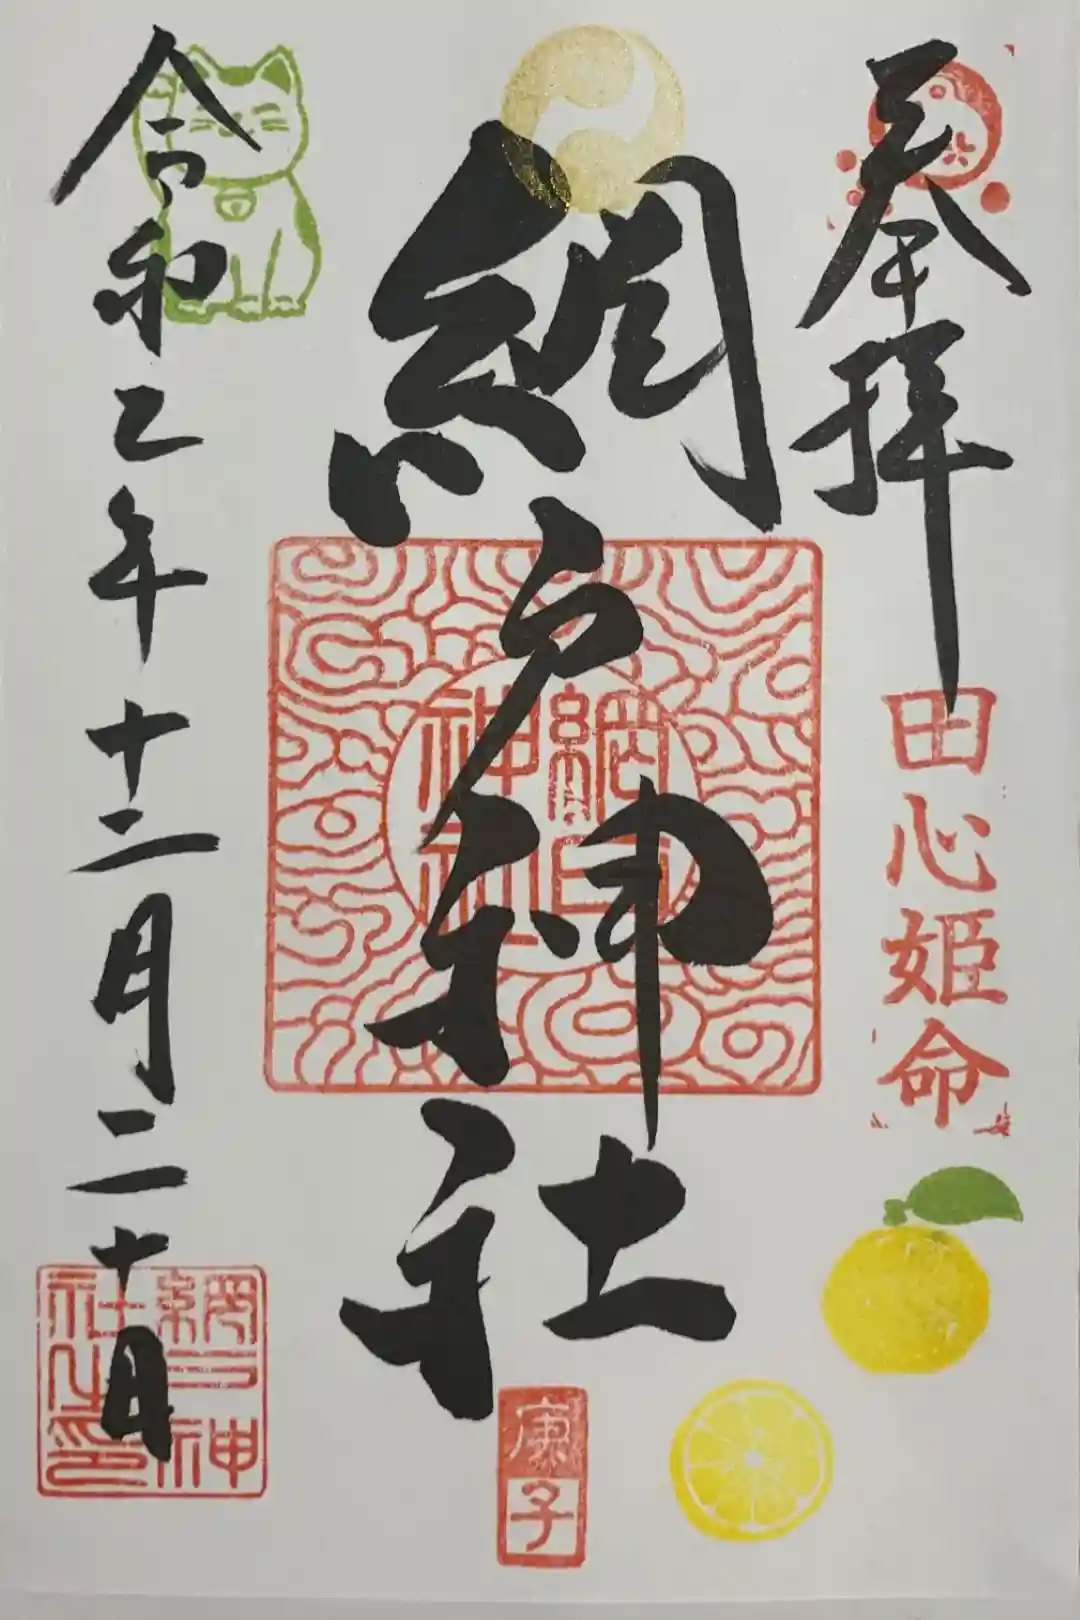 奉拝
田心姫命
網戸神社
網戸神社
庚子
令和二年十二月二十日
網戸神社之印